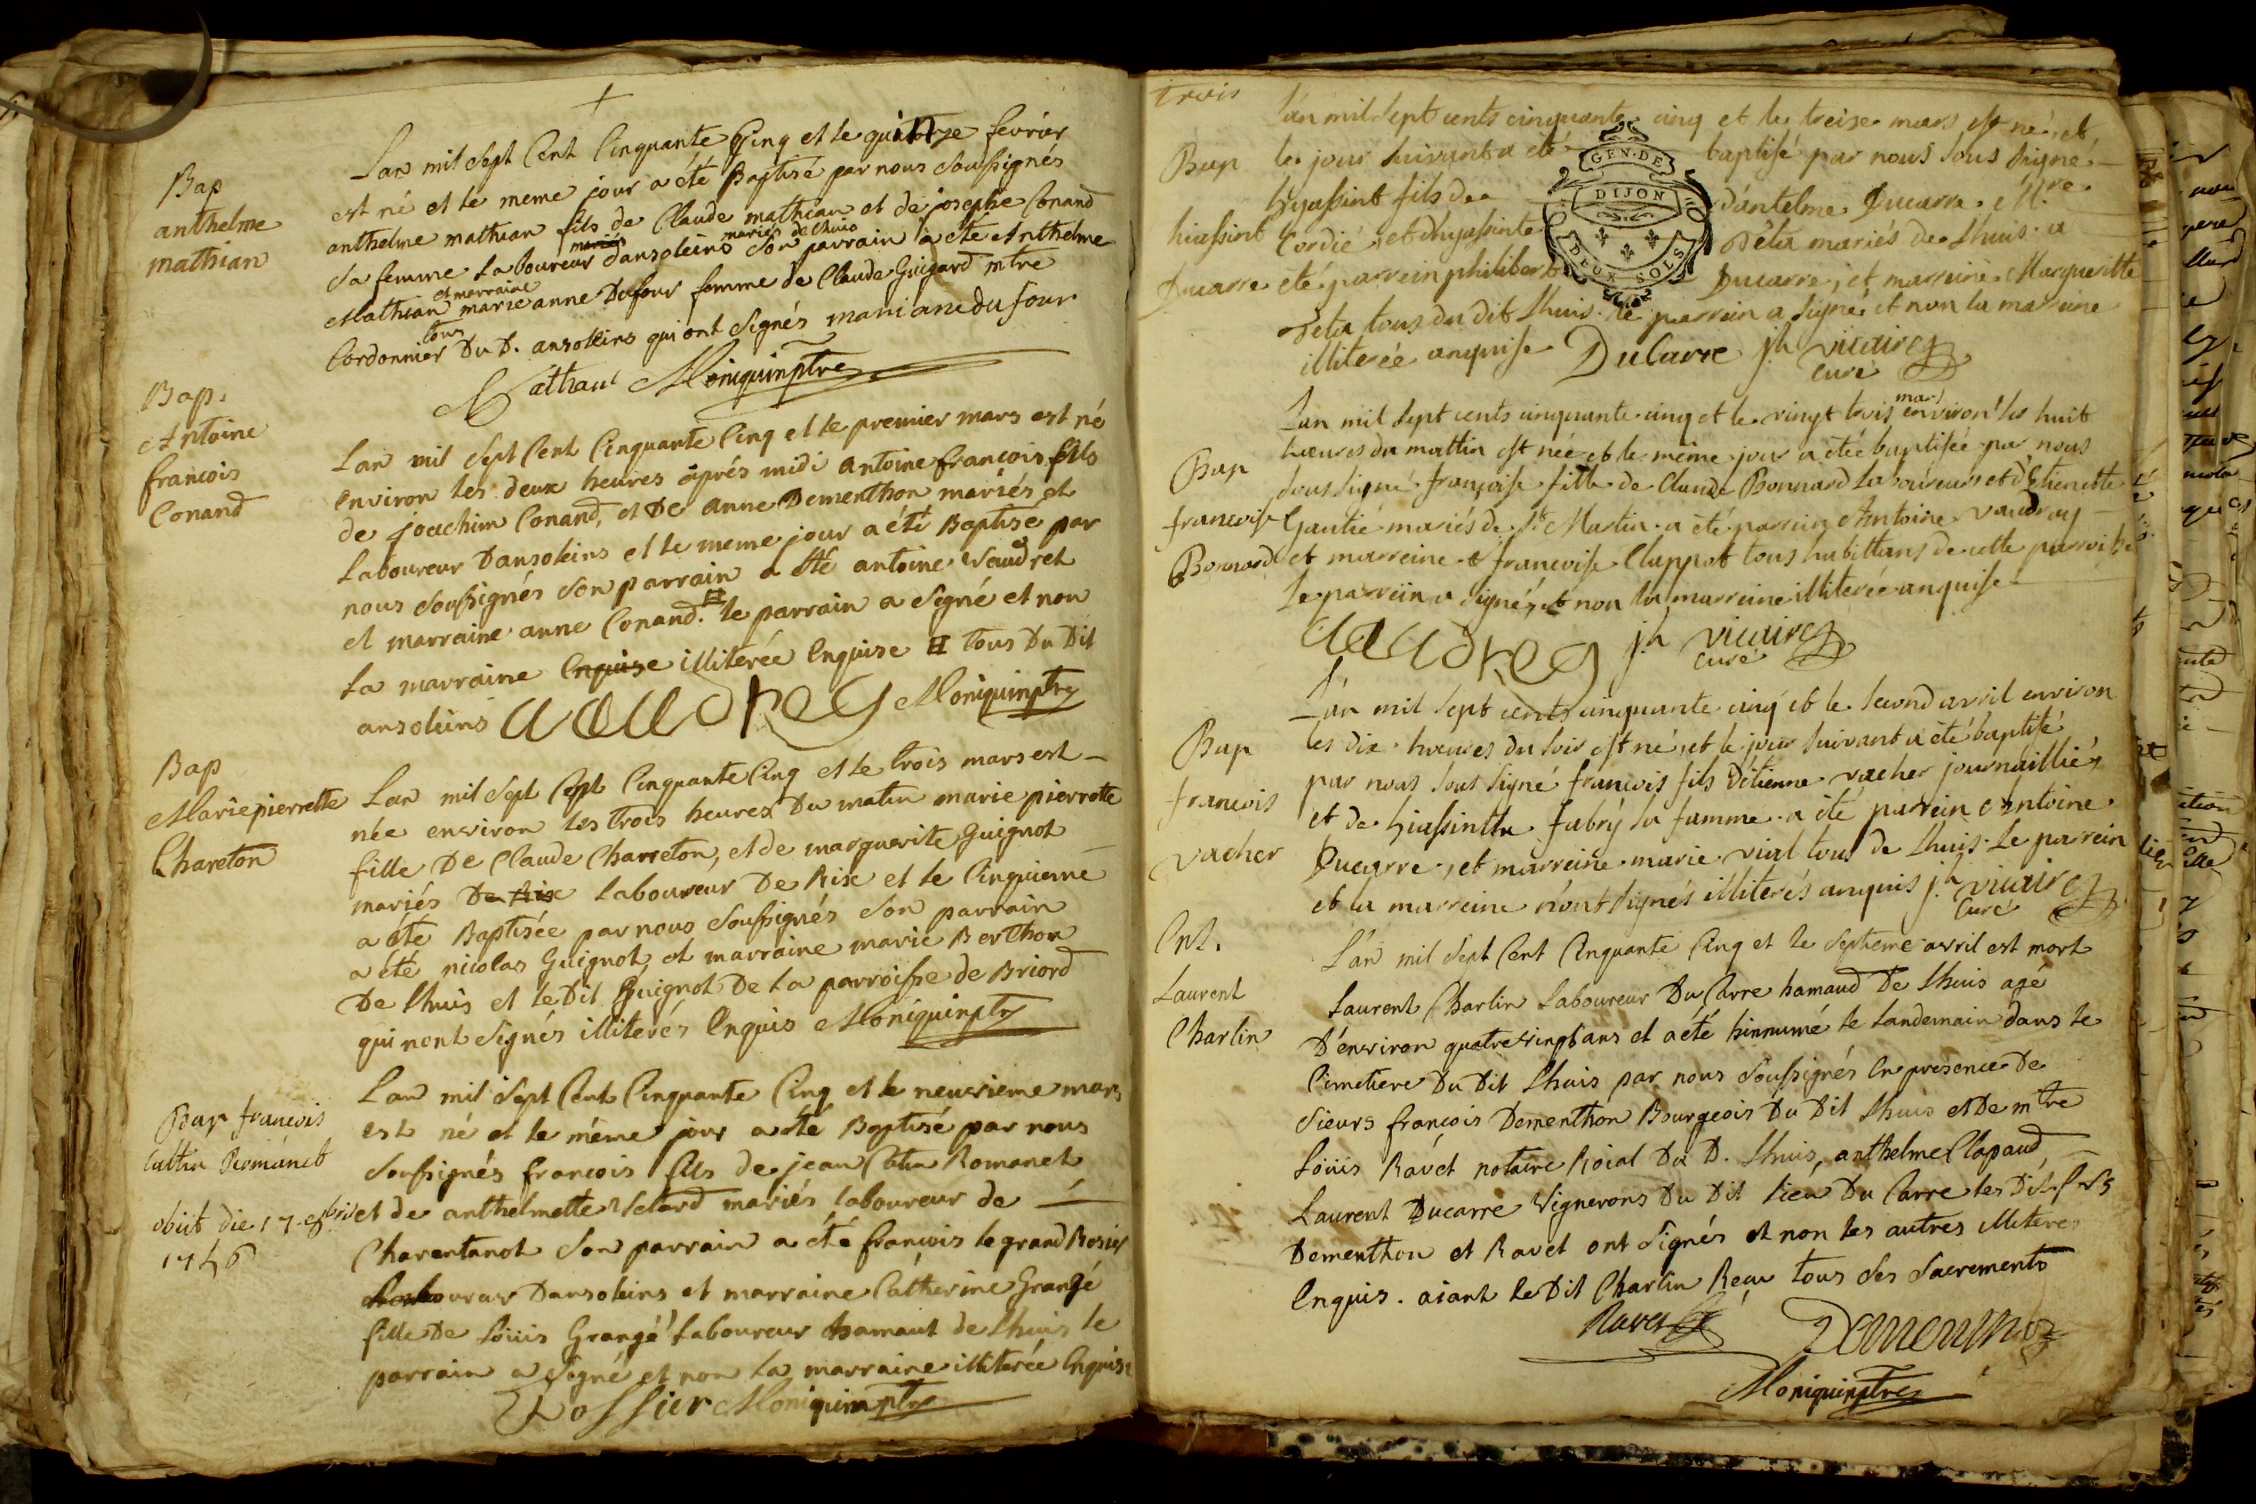 Bap
anthelme
mathian
Lan mil sept Cent Cinquante Cinq et le quinze fevrier
est né et le meme jour a été Baptisé par nous soussignés
anthelme mathian fils de Claude mathian et de josephe Conand
mariés de lhuis
sa femme Laboureur dansoleins son parrain a été Anthelme
et marraine
Mathian marie anne Dufour femme de Claude Guigard mtre
tous
Cordonnier Du D. ansoleins qui ont signés marianedufour
Mathian Moniquin ptre
Bap.
Antoine
francois
Conand
Lan mil sept Cent Cinquante Cinq et le premier mars est né
environ les deux heures áprés midi antoine francois fils
de joachim Conand, et De anne Dementhon mariés et
Laboureur Dansoleins et le meme jour a été Baptisé par
nous soussignés son parrain a été antoine Vaudret
et marraine anne Conand. # le parrain a signé et non
la marraine Enquise illiterée Enquise # tous Du Dit
ansoleins vaudrey Moniquin ptre
Bap
Marie pierrette
Chareton
Lan mil sept Cent Cinquante Cinq et le trois mars est
née environ les trois heures Du matin marie pierrette
fille De Claude Charreton, et de marguerite Guignot
mariés De Rix laboureur De Rix et le Cinquieme
a été Baptisée par nous soussignés son parrain
a été nicolas Guignot, et marraine marie Berthon
De lhuis et le Dit Guignot De la parroisse de Briord
qui nont signés illiterés Enquis Moniquin ptre
Bap francois
Cattin Románet
obiit die 17. 8bris
1756
Lan mil sept Cent Cinquante Cinq et le neuvieme mars
est né et le même jour a été Baptisé par nous
soussignés francois fils de jean Catin Romanet
et de anthelmette Velard mariés laboureur de
Charentanot son parrain a été francois le grand Rosier
laboureur Dansoleins et marraine Cátherine Grangé
fille De Loüis Grangé laboureur hamaut de lhuis le
parrain a signé et non la marraine illiterée Enquise
Rossier Moniquin ptre
trois
Bap
hiassint
Ducarre
L'an mil sept cents cinquante cinq et le treise mars est né, et
le jour suivant a été baptisé par nous sous signé
hyassint fils de d'antelme Ducarre Mtre
Cordié, et d'hyassinte Déta mariés de Lhuis. a
eté parrein philibert Ducarre, et marreine Margueritte
Déta tous du dit Lhuis. le parrein a signé et non la marreine
illiterée anquise Ducarre jh vicaire
curé
GEN. DE
DIJON
DEUX SOLS
Bap
francoise
Bonnard
L'an mil sept cents cinquante cinq et le vingt trois mars environ les huit
heures du mattin est née et le même jour a étée baptisée par nous
sous signé françoise fille de Claude Bonnard Laboureur et d'Etienette
Gantié mariés de St Martin. a été parrein Antoine vaudray
et marreine francoise Clappot tous habittans de cette parroisse
Le parrein a signé, et non la marreine illiterée anquise
vaudrey jh vicaire
curé
Bap
francois
vacher
L'an mil sept cents cinquante cinq et le second avril environ
les dix heures du soir est né, et le jour suivant a été baptisé
par nous sous signé francois fils D'étienne vacher journaillié,
et de hiassintte fabry sa famme. a été parrein Antoine
Ducarre, et marreine marie vial tous de Lhuis. Le parrein
et la marreine n'ont signés illiterés anquis jh vicaire
curé
Ent.
Laurent
Charlin
L'an mil sept Cent Cinquante Cinq et le septieme avril est mort
Laurent Charlin Laboureur Du Carre hamaud De Lhuis agé
D'environ quatre vingt ans et a été hinnumé le landemain dans le
Cimetiere Du Dit Lhuis par nous soussignés En presence De
sieurs françois Dementhon Bourgeois Du Dit Lhuis et De mtre
Loüis Rávet notaire Roial Du D. Lhuis, anthelme Clapaud,
Laurent Ducarre Vignerons Du Dit lieu Du Carre les Dits srs
Dementhon et Ravet ont signés et non les autres illiteres
Enquis. aiant le Dit Charlin Reçu tous ses sacrements
Ravet Dementhon
Moniquin ptre